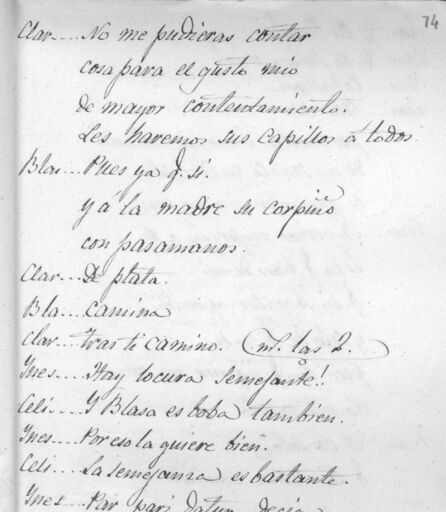 74
Clar.... No me pudieras contar
cosa para el gusto mio
de mayor contentamiento.
Les haremos sus capillos á todos.
Blas... Pues ya q. si.
y á la madre su corpiño
con pasamanos.
Clar... De plata.
Bla... Camina
Clar... tras ti camino. las 2.
Ynes.... Hay locura semejante!
Celi... Y Blasa es boba tambien.
Ynes... Por eso la quiere bien.
Celi... La semejanza es bastante.
Ynes... Par pari datur, decia